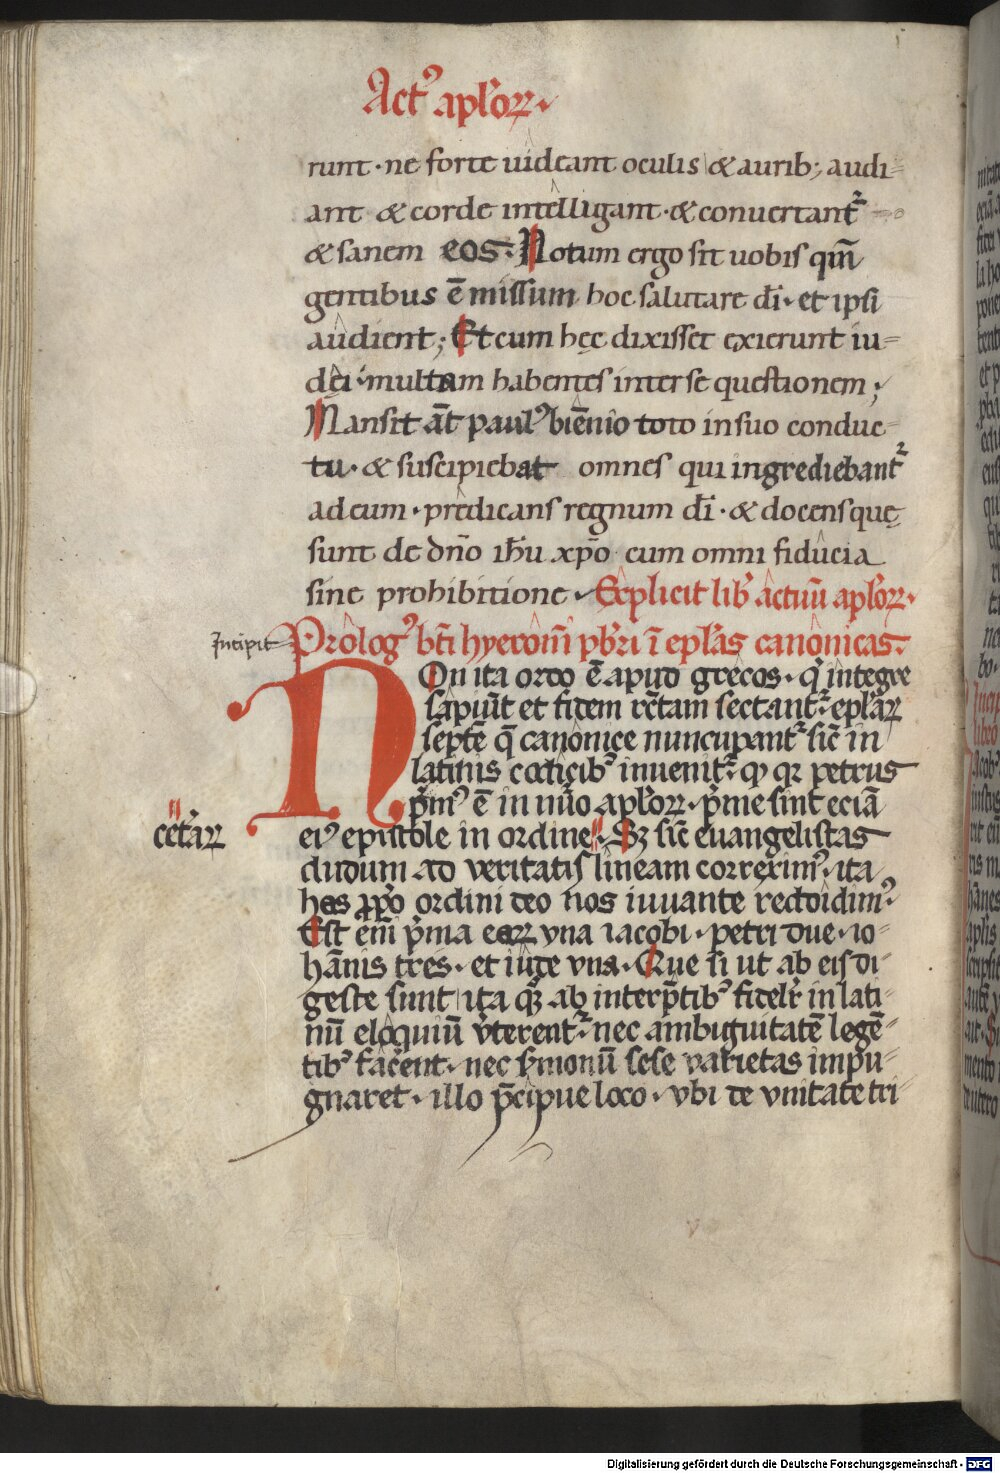 Act᾽ apl'oꝝ.
runt · ne forte uideant oculis & aurib; audi-
ant & corde intelligant · & conuertant᷑
& sanem eos · Notum ergo sit uobis qm̄
gentibus ē missum hoc salutare dī · et ipsi
audient ; Et cum hęc dixisset exierunt iu-
dei · multam habentes inter se questionem ;
Mansit aūt paulꝰ biennio toto in suo conduc-
tu · & suscipiebat omnes qui ingrediebant᷑
ad eum · predicans regnum dī · & docens quę
sunt de dn̄o ih̄u xp̄o cum omni fiducia
sine prohibitione · Explicit lib' actuū apl'oꝝ.
Incipit Prologꝰ bt̄i hyeronimi pb'ri ī epl'as canonicas.
Non ita ordo ē apud grecos · q' integre
sapiūt et fidem rc̄tam sectant᷑ · epl'aꝝ
septē q̄ canonice nuncupant᷑ sic̄ in
latinis codicibꝰ inuenit᷑ · qꝫ qꝛ petrus
p'mꝰ ē in nūo apl'oꝝ · p'me sint eciā
eiꝰ epistole in ordine · Sꝫ sic̄ euangelistas
cet'aꝝ
dudum ad veritatis lineam correximꝰ · ita
has ꝓp'o ordini deo nos iuuante reddidimꝰ ·
Est em̄ p'ma eaꝝ vna iacobi · petri due · io-
hānis tres · et iude vna · Que si ut ab eis di-
geste sunt ita qꝫ ab interp̄tibꝰ fidelr̄ in lati-
nū eloquiū v'terent᷑ · nec ambiguitatē legē-
tibꝰ fac'ent · nec s'monū sese varietas impu-
gnaret · illo p̄cipue loco · vbi de vnitate tri-
Digitalisierung gefördert durch die Deutsche Forschungsgemeinschaft - DFG